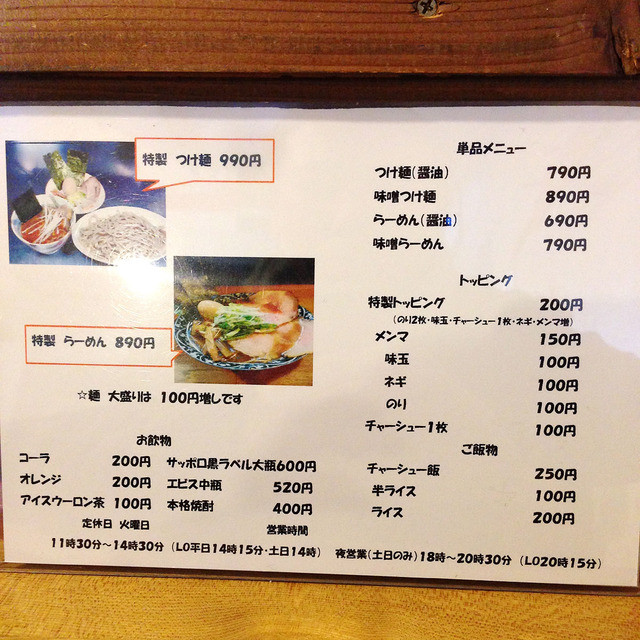 特製 つけ麺 990円
特製 らーめん 890円
☆麺 大盛りは 100円増しです
お飲物
コーラ 200円
オレンジ 200円
アイスウーロン茶 100円
サッポロ黒ラベル大瓶600円
エビス中瓶 520円
本格焼酎 400円
単品メニュー
つけ麺(醤油) 790円
味噌つけ麺 890円
らーめん(醤油) 690円
味噌らーめん 790円
トッピング
特製トッピング 200円
(のり2枚・味玉・チャーシュー1枚・ネギ・メンマ増)
メンマ 150円
味玉 100円
ネギ 100円
のり 100円
チャーシュー1枚 100円
ご飯物
チャーシュー飯 250円
半ライス 100円
ライス 200円
定休日 火曜日
営業時間
11時30分～14時30分 (LO平日14時15分・土日14時) 夜営業(土日のみ)18時～20時30分 (LO20時15分)